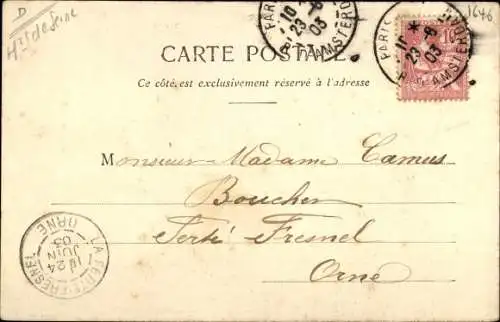 D
Hts de Seine
1646
PARIS
10 *
23 -6
03
R. D'AMSTERDAM
PARIS
11 *
23 -6
03
R. D'AMSTERDAM
10
CARTE POSTALE
Ce côté est exclusivement réservé à l'adresse
Monsieur Madame Camus
Boucher
Ferté Fresnel
Orne
LA FERTÉ-FRESNEL
24
JUIN
03
ORNE